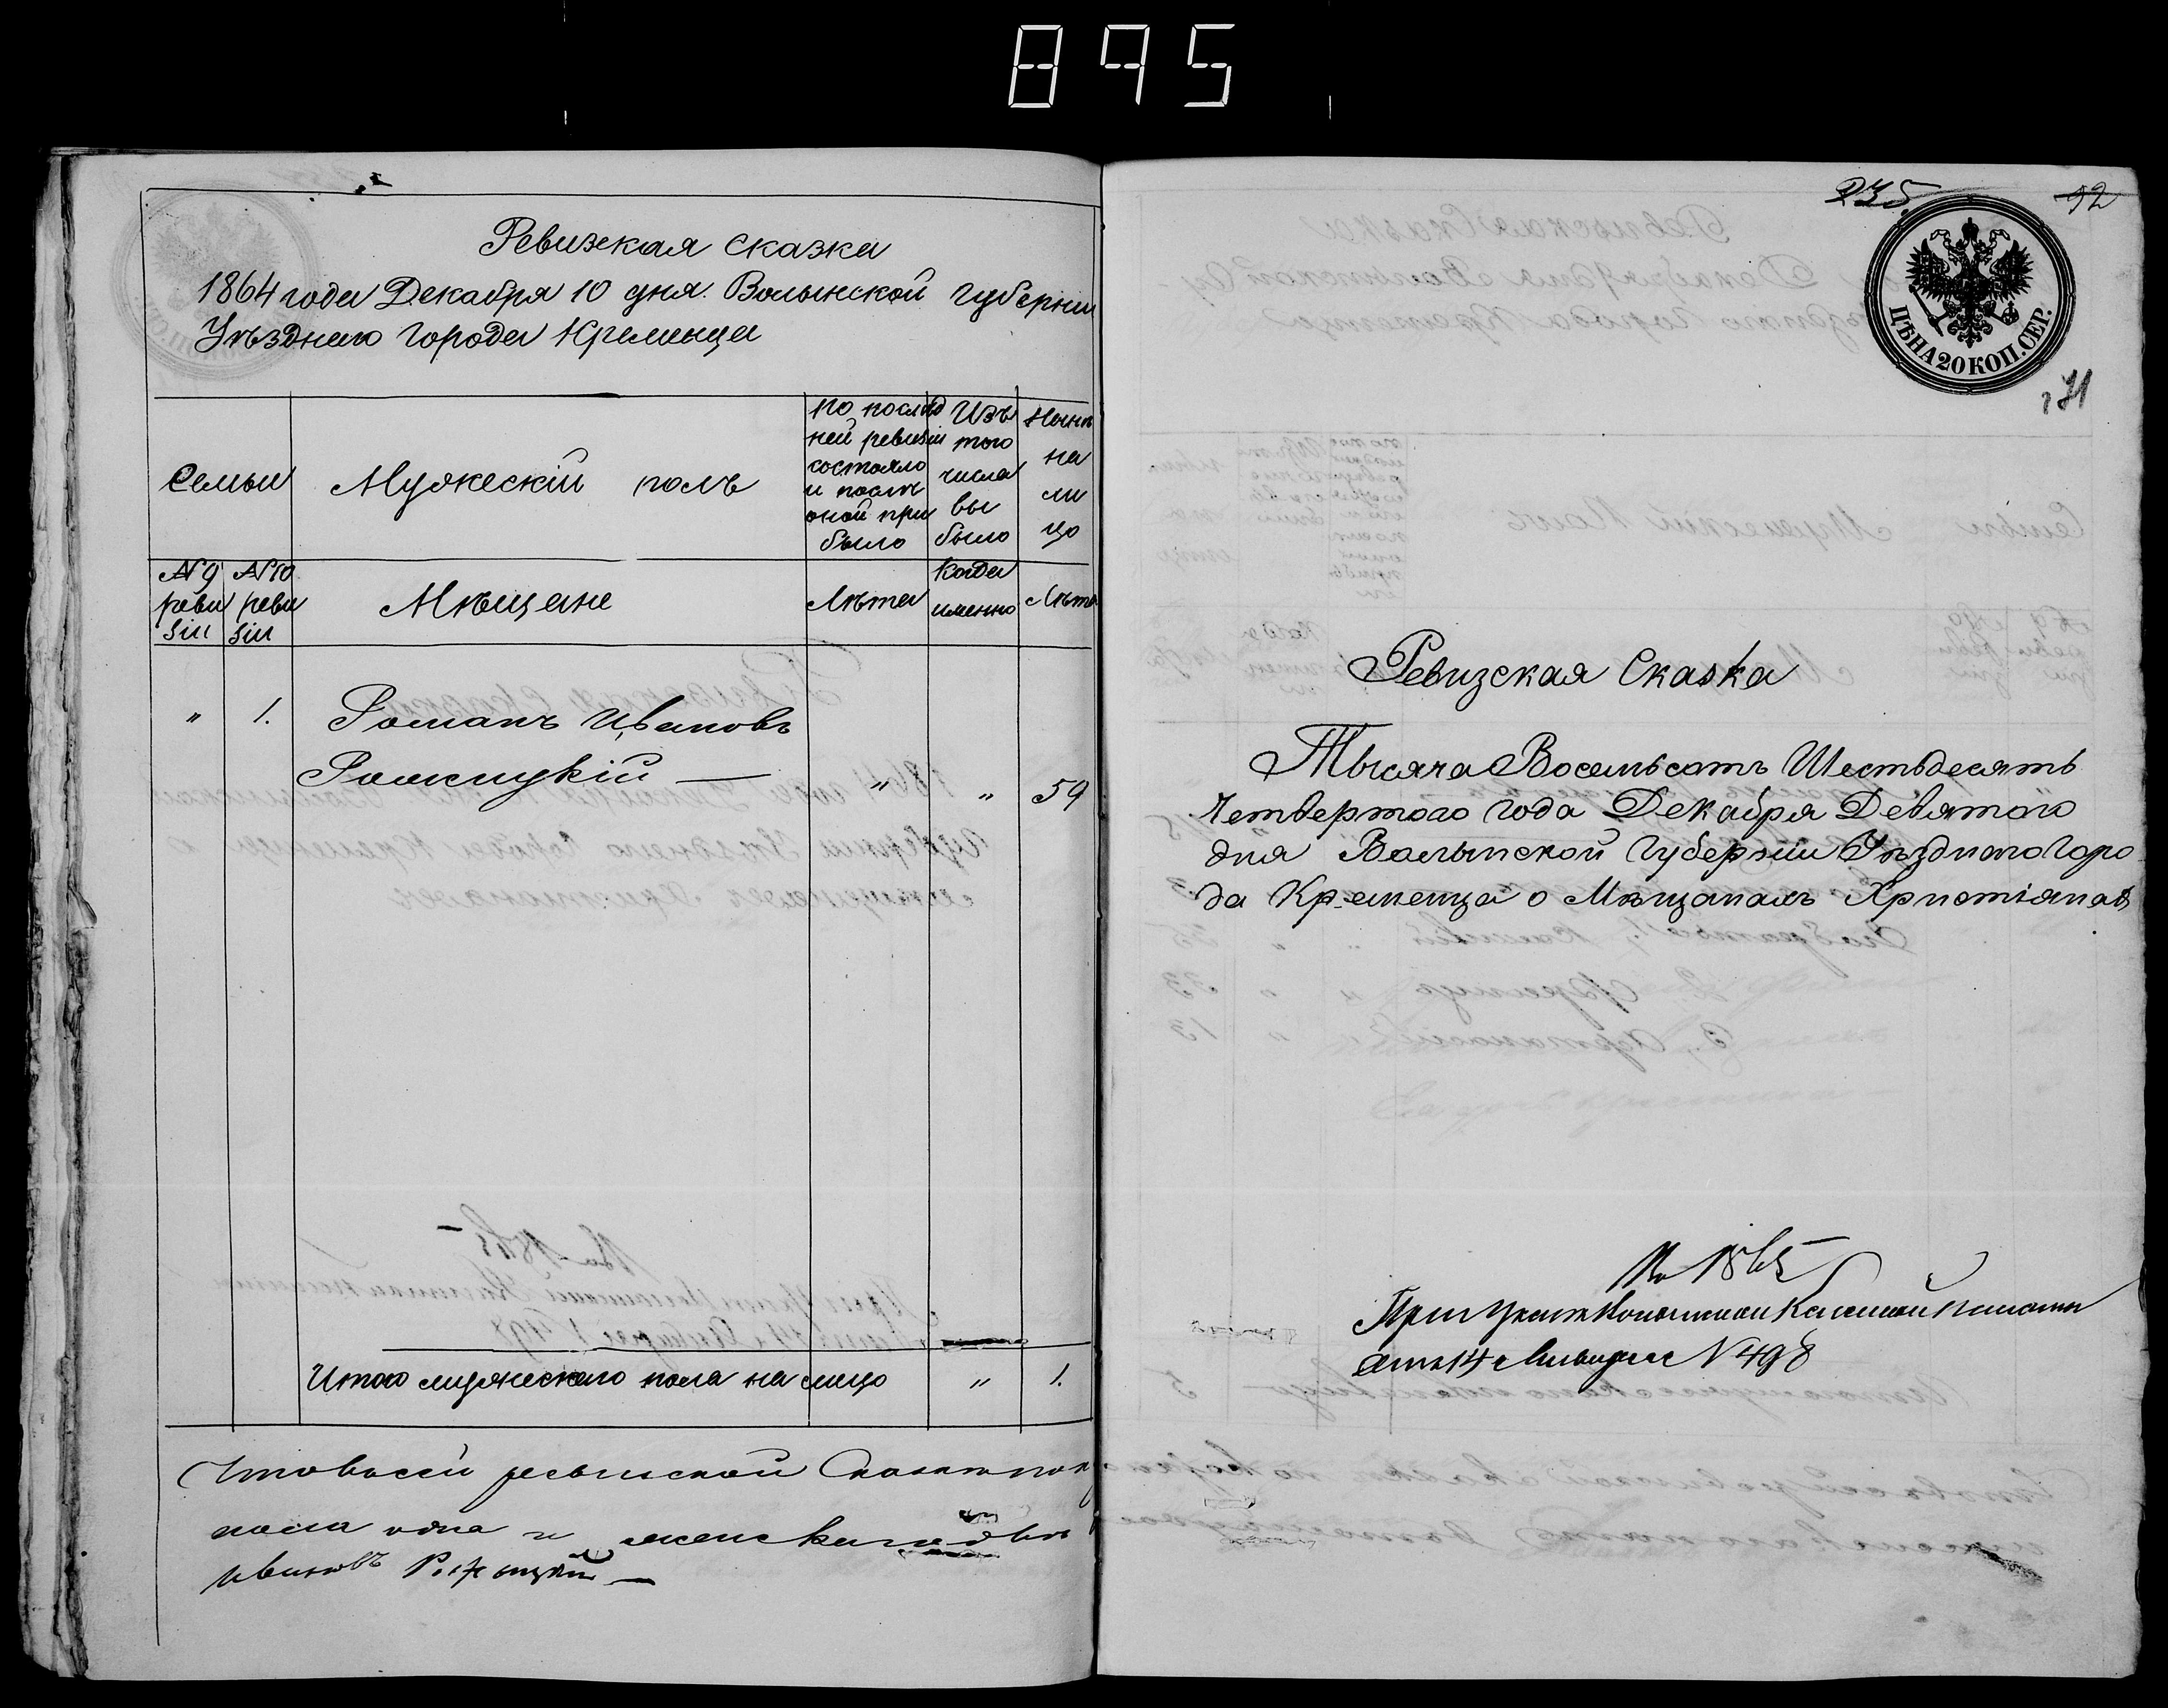 895
Ревизская сказка
1864 года Декабря 10 дня. Волынской губернии
Уѣзднаго города Кременца
Семьи
Мужескій полъ
по послѣд
ней ревизіи
состояло
и послѣ
оной при
было
Изъ
того
числа
вы
было
Нынѣ
на
ли
цо
№ 9
реви
зіи
№ 10
реви
зіи
Мѣщане
Лѣта
когда
именно
Лѣта
" 1. Романъ Ивановъ
" " 59
Итого мужескаго пола на лицо " 1.
Что въ сей ревизской
пола одна и женскаго
Ивановъ
235.
92
ЦѢНА 20 КОП. СЕР.
171
Ревизская Сказка
Тысяча Восемьсотъ Шестьдесятъ
Четвертого года Декабря Девятого
дня Волынской Губерніи Уѣздного Горо
да Кременца о Мѣщанахъ Христіянах
1865
При Указѣ Волынской Казенной Палаты
отъ 14 Января № 498